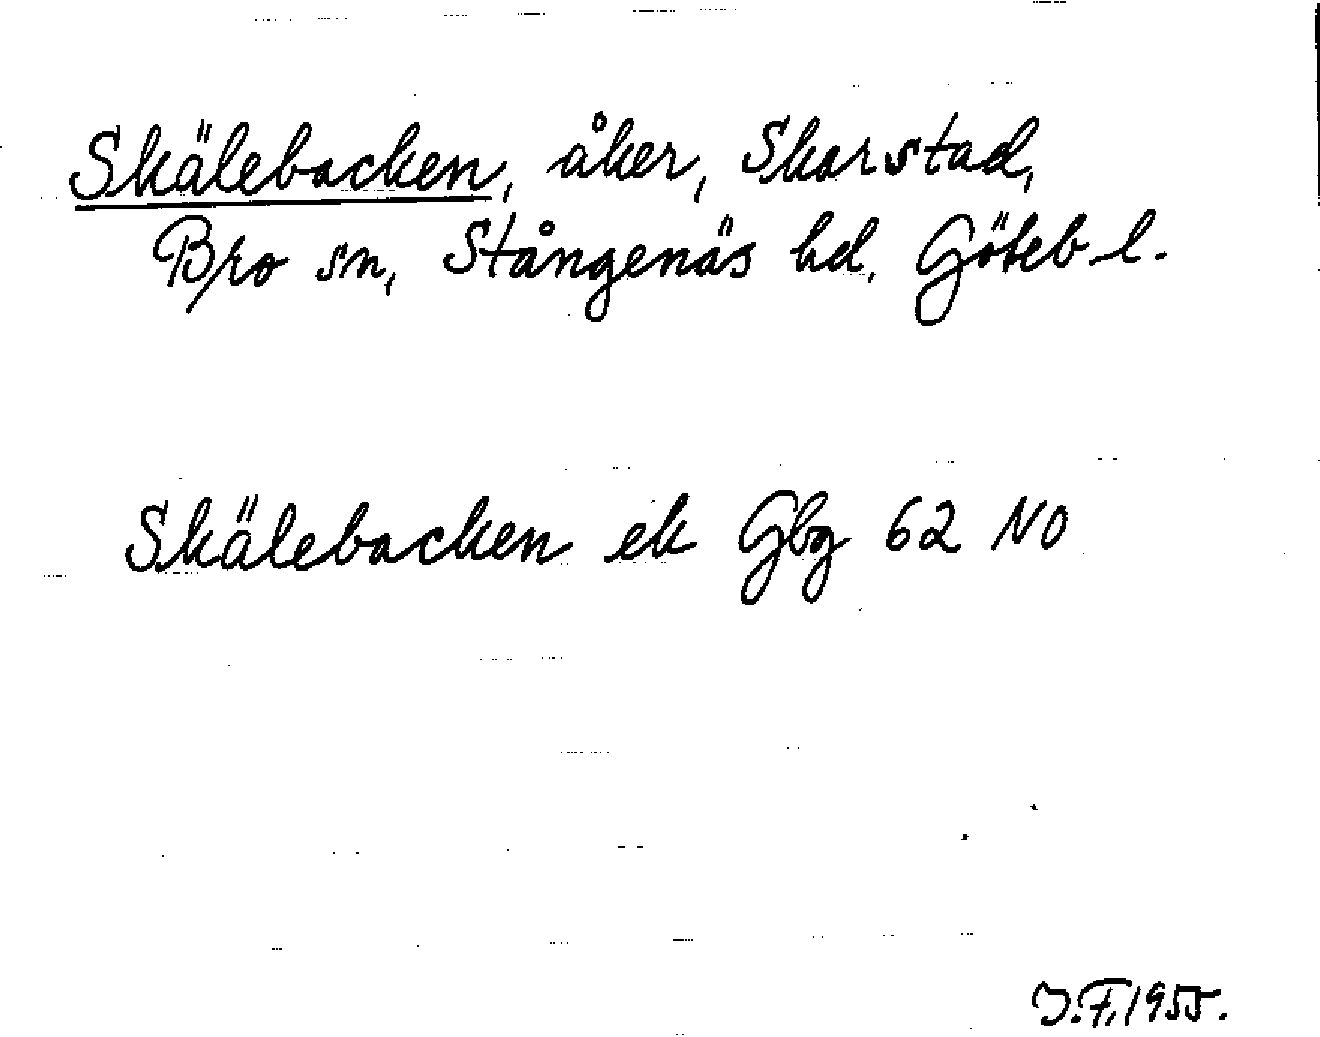 Skälebacken, åker, Skarstad,
Bro sn, Stångenäs hd, Göteb. l.
Skälebacken ek Gbg 62 NO
J.F. 1955.